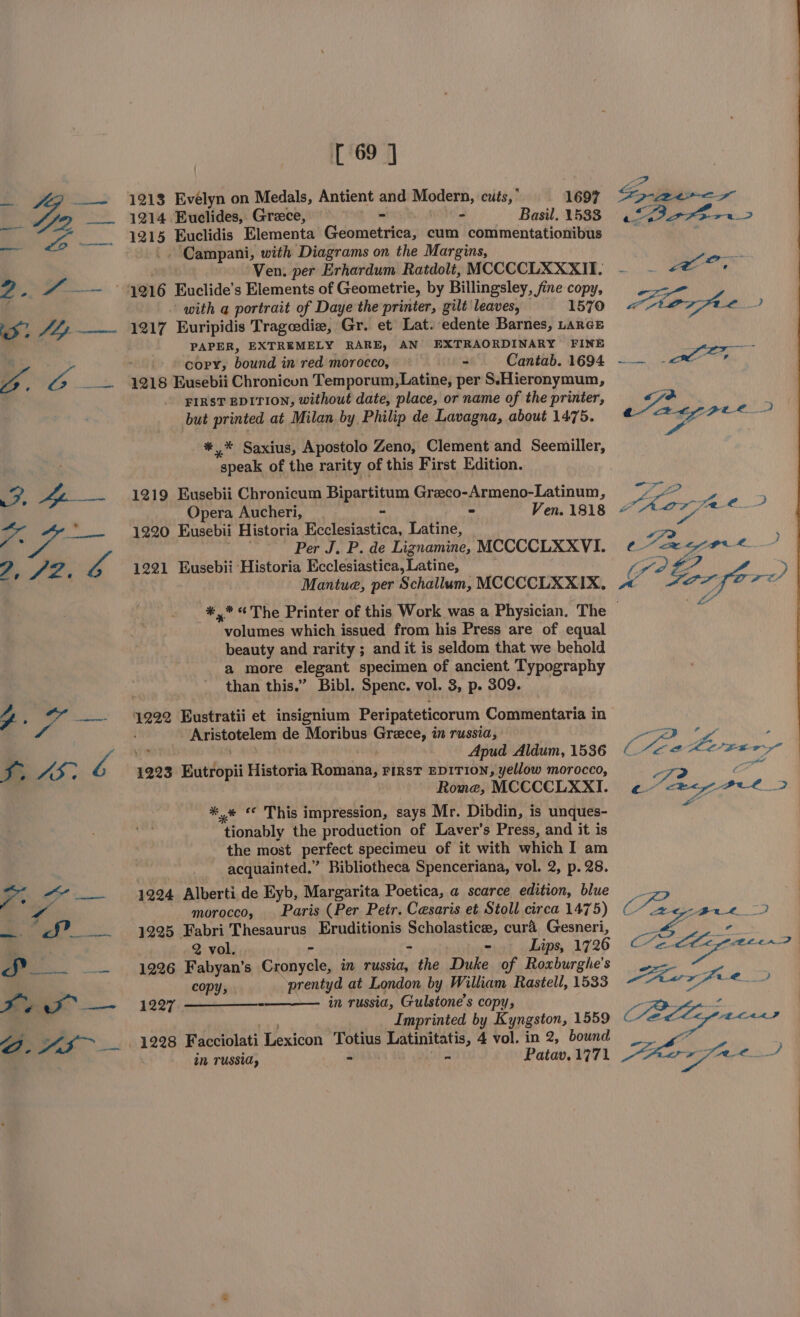 [ 69 ]
1213 Evelyn on Medals, Antient and Modern, cuts, 1697
1214 Euclides, Græce, - - Basil. 1533
1215 Euclidis Elementa Geometrica, cum commentationibus
Campani, with Diagrams on the Margins,
Ven. per Erhardum Ratdolt, MCCCCLXXXII.
2. 1216 Euclide's Elements of Geometrie, by Billingsley, fine copy,
with a portrait of Daye the printer, gilt leaves, 1570
1217 Euripidis Tragœdiæ, Gr. et Lat. edente Barnes, LARGE
PAPER, EXTREMELY RARE, AN EXTRAORDINARY FINE
COPY, bound in red morocco, - Cantab. 1694
1218 Eusebii Chronicon Temporum, Latine, per S. Hieronymum,
FIRST EDITION, without date, place, or name of the printer,
but printed at Milan by Philip de Lavagna, about 1475.
*** Saxius, Apostolo Zeno, Clement and Seemiller,
speak of the rarity of this First Edition.
1219 Eusebii Chronicum Bipartitum Græco-Armeno-Latinum,
Opera Aucheri, - - Ven. 1818
1220 Eusebii Historia Ecclesiastica, Latine,
Per J. P. de Lignamine, MCCCCLXXVI.
2. 12. 6 1221 Eusebii Historia Ecclesiastica, Latine,
Mantuæ, per Schallum, MCCCCLXXIX.
*** “The Printer of this Work was a Physician. The
volumes which issued from his Press are of equal
beauty and rarity; and it is seldom that we behold
a more elegant specimen of ancient Typography
than this.” Bibl. Spenc. vol. 3, p. 309.
1222 Eustratii et insignium Peripateticorum Commentaria in
Aristotelem de Moribus Græce, in russia,
Apud Aldum, 1536
1223 Eutropii Historia Romana, FIRST EDITION, yellow morocco,
Romæ, MCCCCLXXI.
*** “This impression, says Mr. Dibdin, is unques-
tionably the production of Laver's Press, and it is
the most perfect specimeu of it with which I am
acquainted.” Bibliotheca Spenceriana, vol. 2, p. 28.
1224 Alberti de Eyb, Margarita Poetica, a scarce edition, blue
morocco, Paris (Per Petr. Cæsaris et Stoll circa 1475)
1225 Fabri Thesaurus Eruditionis Scholasticæ, curâ Gesneri,
2 vol. - - - Lips, 1726
1226 Fabyan's Cronycle, in russia, the Duke of Roxburghe's
copy, prentyd at London by William Rastell, 1533
1227 ——— in russia, Gulstone's copy,
Imprinted by Kyngston, 1559
1228 Facciolati Lexicon Totius Latinitatis, 4 vol. in 2, bound
in russia, - - Patav. 1771